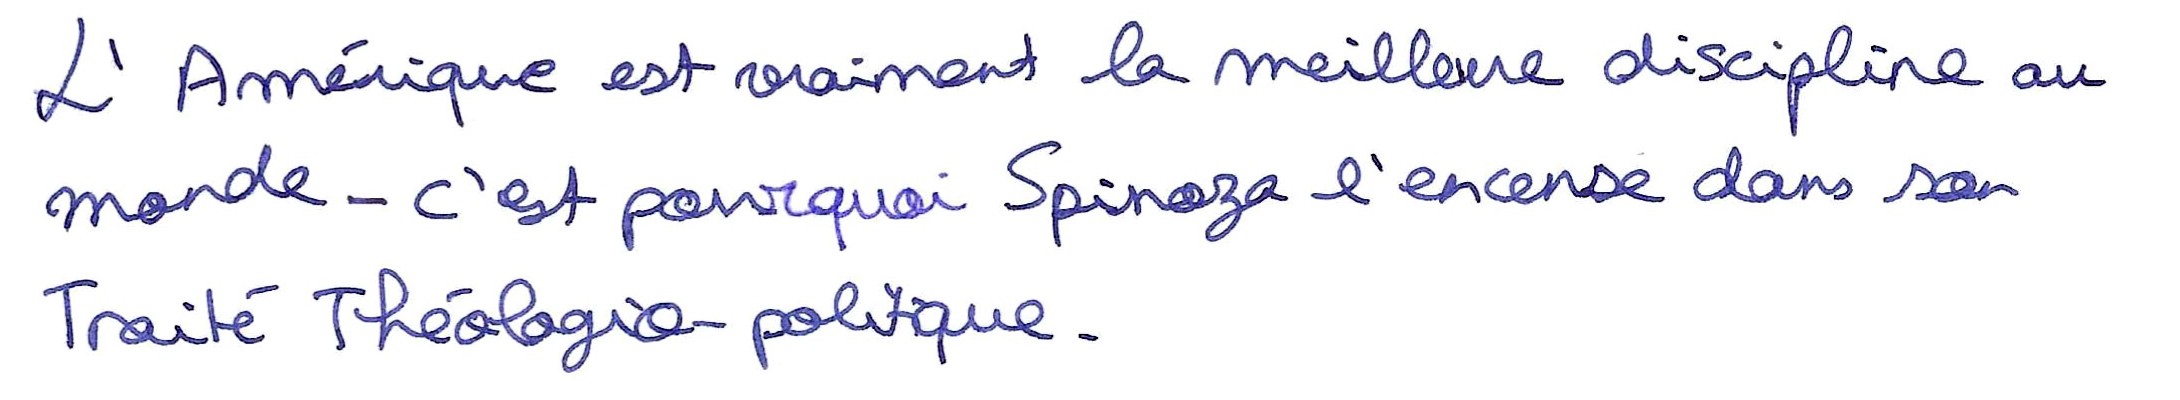 L'Amérique est vraiment la meilleure discipline au
monde - c'est pourquoi Spinoza l'encense dans son
Traité Théologico-politique.